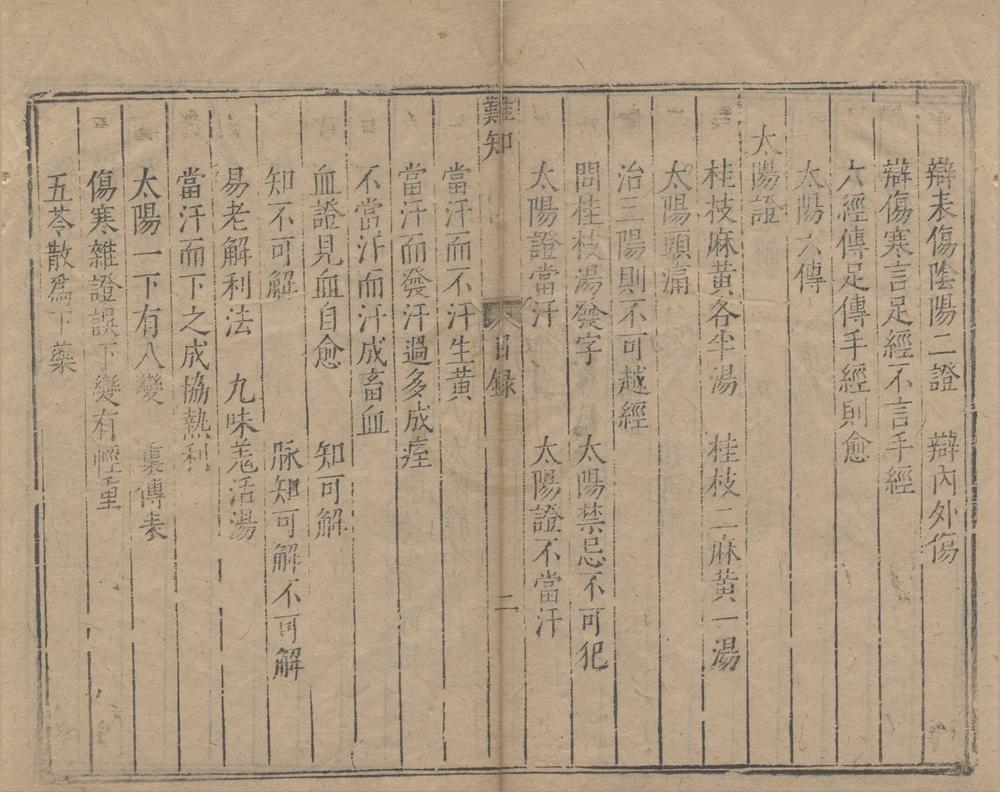 辯表傷陰陽二證　辯內外傷
辯傷寒言足經不言手經
六經傳足傳手經則愈
太陽六傳
太陽證
桂枝麻黃各半湯　桂枝二麻黃一湯
太陽頭痛
治三陽則不可越經
問桂枝湯發字　太陽禁忌不可犯
太陽證當汗　太陽證不當汗
難知　目録　二
當汗而不汗生黃
當汗而發汗過多成痓
不當汗而汗成畜血
血證見血自愈　知可解
知不可解　脉知可解不可解
易老解利法　九味羗活湯
當汗而下之成協熱利
太陽一下有八變　裏傳表
傷寒雜證誤下變有輕重
五苓散爲下藥